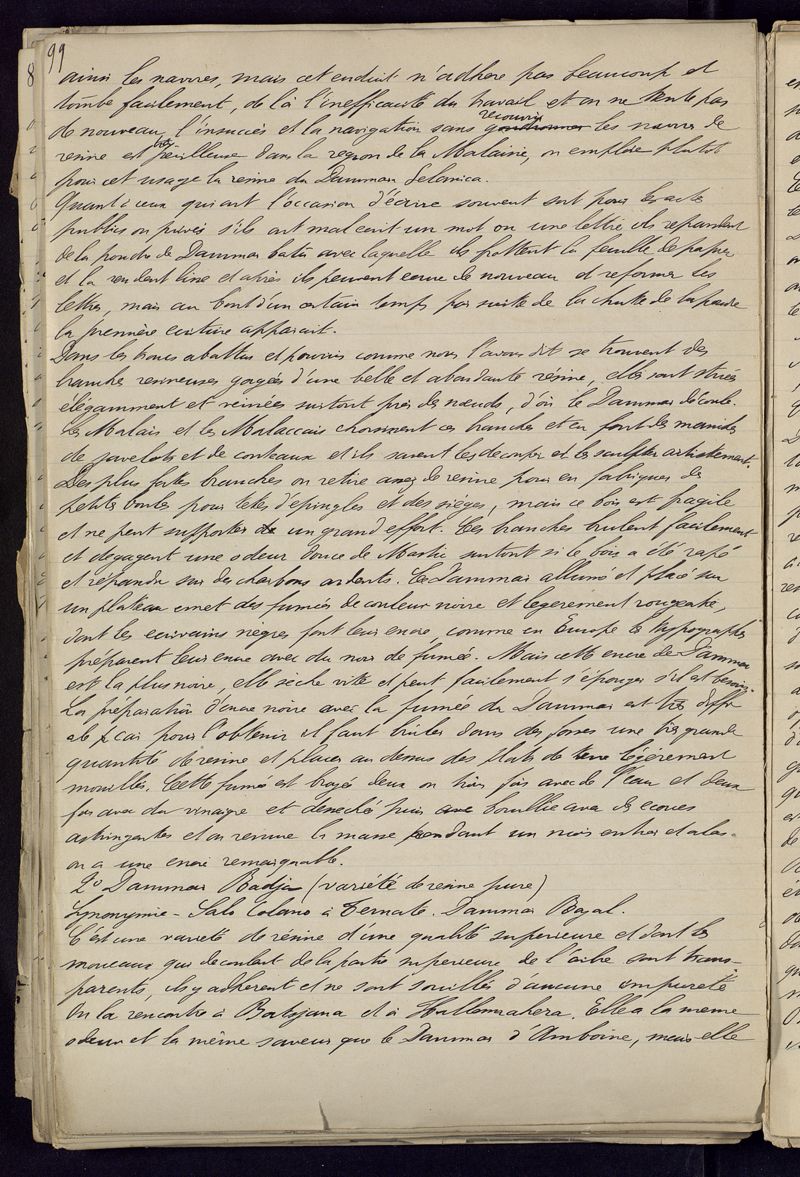 99
ainsi les navires, mais cet enduit n'adhère pas beaucoup et
tombe facilement, de là l'inefficacité du travail et on ne tente pas
de nouveau, l'insuccès et la navigation sans goudronner recouvrir les navires de
resine est très périlleuse dans la region de la Malaisie, on emploie plutôt
pour cet usage la resine du Dammar Selanica.
Quant à ceux qui ont l'occasion d'écrire souvent soit pour les actes
publics ou privés s'ils ont mal ecrit un mot ou une lettre ils repandent
de la poudre de Dammar batu avec laquelle ils frottent la feuille de papier
et la rendent lisse et après ils peuvent ecrire de nouveau et reformer les
lettres, mais au bout d'un certain temps par suite de la chutte de la poudre
la première ecriture apparait.
Dans les troncs abattus et pourris comme nous l'avons dit se trouvent des
branches resineuses gorgées d'une belle et abondante résine, elles sont striées
élégamment et veinées surtout près des nœuds, d'où le Dammar découle.
Les Malais et les Malaccais choisissent ces branches et en font des manches
de javelots et de couteaux et ils savent les découper et les sculpter artistement.
Des plus fortes branches on retire assez de resine pour en fabriquer de
petites boules pour têtes d'epingles et des sièges, mais ce bois est fragile
et ne peut supporter de un grand effort. Ces branches brulent facilement
et degagent une odeur douce de Mastic surtout si le bois a été rapé
et répandu sur des charbons ardents. Le Dammar allumé et placé sur
un plateau emet des fumées de couleur noire et legerement rougeatre,
dont les ecrivains nègres font leur encre, comme en Europe les typographes
préparent leur encre avec du noir de fumée. Mais cette encre de Dammar
est la plus noire, elle sèche vite et peut facilement s'éponger s'il est besoin.
La préparation d'encre noire avec la fumée du Dammar est très diffi-
cile car pour l'obtenir il faut bruler dans des fosses une très grande
quantité de resine et placer au dessus des plats de terre légèrement
mouillés. Cette fumée est broyée deux ou trois fois avec de l'eau et deux
fois avec du vinaigre et desechée puis avec bouillie avec des ecorces
astringentes et on remue la masse pendant un mois entier et alors
on a une encre remarquable.
2° Dammar Badja (variété de resine pure)
Synonymie - Salo Colano à Ternate. Dammar Bagal.
C'est une varieté de résine d'une qualité superieure et dont les
morceaux qui decoulent de la partie superieure de l'arbre sont trans-
parents, ils y adhèrent et ne sont souillés d'aucune impureté
On la rencontre à Batsjana et à Hallemahera. Elle a la meme
odeur et la même saveur que le Dammar d'Amboine, mais elle